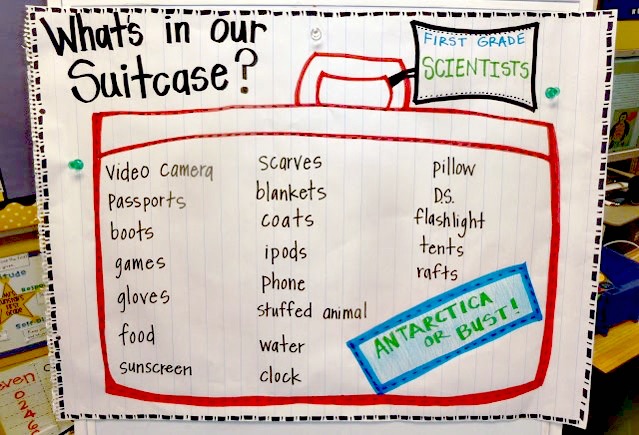 What's in our
Suitcase?
FIRST GRADE
SCIENTISTS
video camera
Passports
boots
games
gloves
food
sunscreen
scarves
blankets
coats
ipods
Phone
stuffed animal
water
clock
pillow
D.S.
flashlight
tents
rafts
ANTARCTICA
OR BUST!